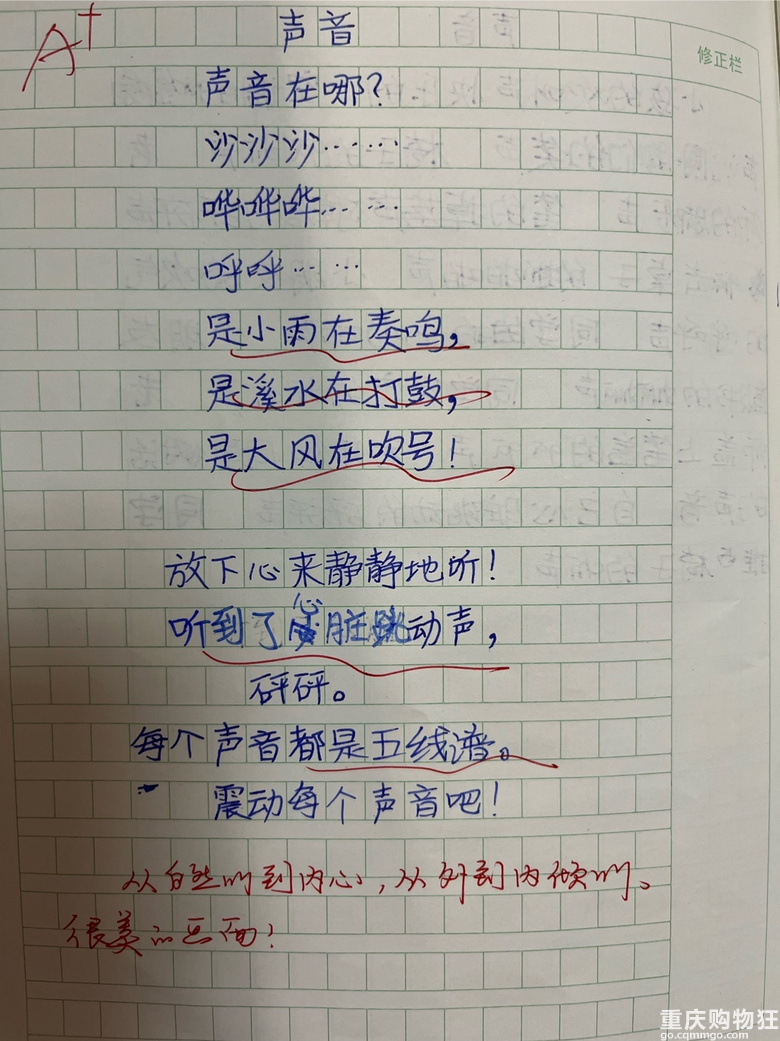 A+
声音
修正栏
声音在哪？
沙沙沙……
哗哗哗……
呼呼……
是小雨在奏鸣，
是溪水在打鼓，
是大风在吹号！
放下心来静静地听！
听到了心脏跳动声，
砰砰。
每个声音都是五线谱。
震动每个声音吧！
从自然听到内心，从外到内倾听。
很美的画面！
重庆购物狂
go.cqmmgo.com